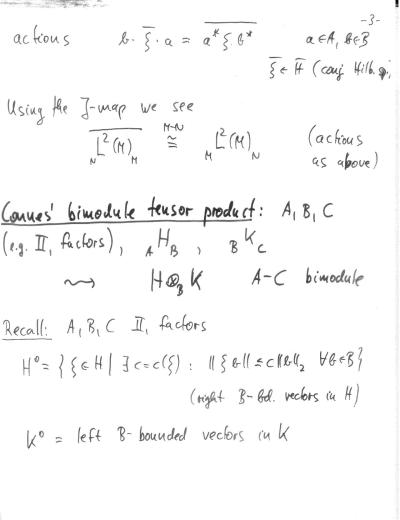 -3-
actions b·ξ̄·a = \overline{a*ξ·b*} a∈A, b∈B
ξ̄ ∈ H̄ (conj Hilb. sp.)
Using the J-map we see
_N \overline{L²(M)}_M ≅^{M-N} _M L²(M)_N (actions
as above)
Connes' bimodule tensor product: A, B, C
(e.g. II₁ factors), _A H_B , _B K_C
⇝ H⊗_B K A-C bimodule
Recall: A, B, C II₁ factors
H⁰ = {ξ∈H | ∃ c=c(ξ) : ‖ξb‖ ≤ c‖b‖₂ ∀b∈B}
(right B-bd. vectors in H)
K⁰ = left B-bounded vectors in K